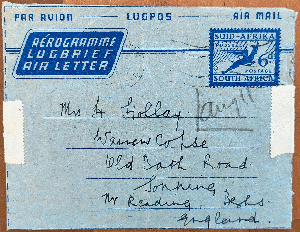 PAR AVION LUGPOS AIR MAIL
AÉROGRAMME
LUGBRIEF
AIR LETTER
SUID-AFRIKA
6d
POSTAGE
SOUTH AFRICA
Mrs H Gollay
Warren Copse
Old Bath Road
Sonning
Nr Reading, Berks.
England.